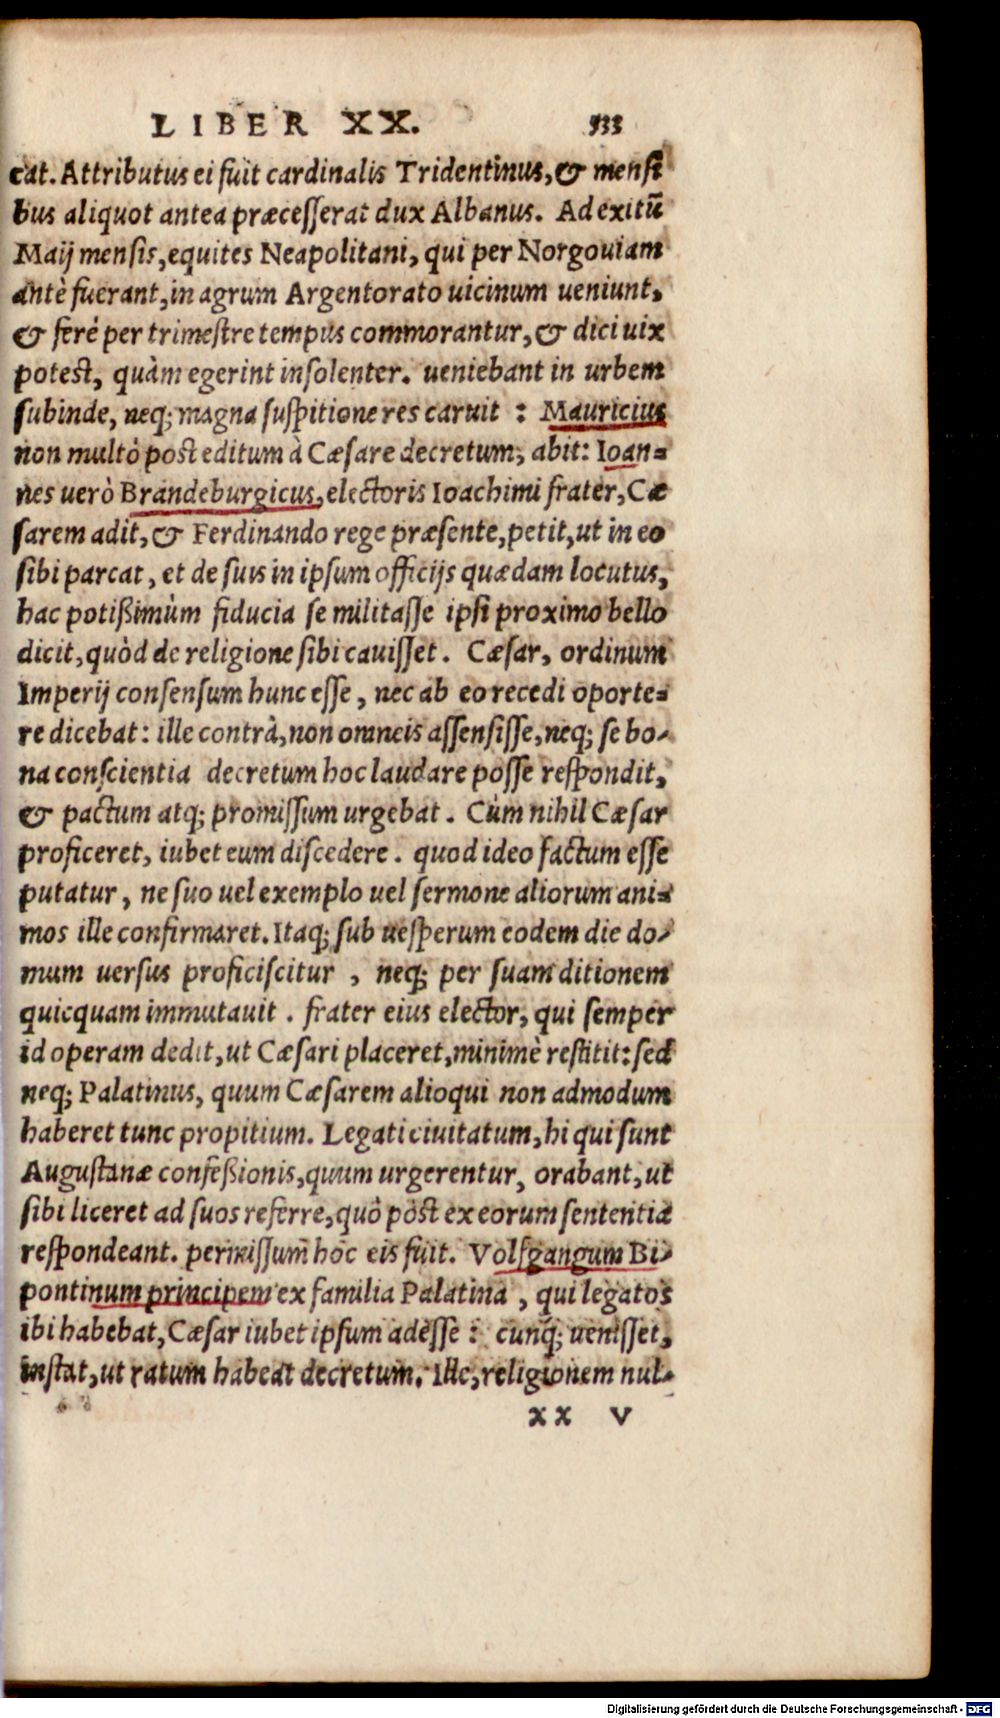 LIBER XX. 533
cat. Attributus ei fuit cardinalis Tridentinus, & mensi
bus aliquot antea præcesserat dux Albanus. Ad exitũ
Maij mensis, equites Neapolitani, qui per Norgouiam
antè fuerant, in agrum Argentorato uicinum ueniunt,
& ferè per trimestre tempus commorantur, & dici uix
potest, quàm egerint insolenter. ueniebant in urbem
subinde, neq; magna suspitione res caruit : Mauricius
non multò post editum à Cæsare decretum, abit: Ioan=
nes uerò Brandeburgicus, electoris Ioachimi frater, Cæ
sarem adit, & Ferdinando rege præsente, petit, ut in eo
sibi parcat, et de suis in ipsum officijs quædam locutus,
hac potißimùm fiducia se militasse ipsi proximo bello
dicit, quòd de religione sibi cauisset. Cæsar, ordinum
Imperij consensum hunc esse, nec ab eo recedi oporte=
re dicebat: ille contrà, non omneis assensisse, neq; se bo-
na conscientia decretum hoc laudare posse respondit,
& pactum atq; promissum urgebat. Cùm nihil Cæsar
proficeret, iubet eum discedere. quod ideo factum esse
putatur, ne suo uel exemplo uel sermone aliorum ani=
mos ille confirmaret. Itaq; sub uesperum eodem die do-
mum uersus proficiscitur, neq; per suam ditionem
quicquam immutauit. frater eius elector, qui semper
id operam dedit, ut Cæsari placeret, minimè restitit: sed
neq; Palatinus, quum Cæsarem alioqui non admodum
haberet tunc propitium. Legati ciuitatum, hi qui sunt
Augustanæ confeßionis, quum urgerentur, orabant, ut
sibi liceret ad suos referre, quò pòst ex eorum sententia
respondeant. permissum hoc eis fuit. Volfgangum Bi-
pontinum principem ex familia Palatina, qui legatos
ibi habebat, Cæsar iubet ipsum adesse : cunq; uenisset,
instat, ut ratum habeat decretum. Ille, religionem nul-
xx v
Digitalisierung gefördert durch die Deutsche Forschungsgemeinschaft - DFG